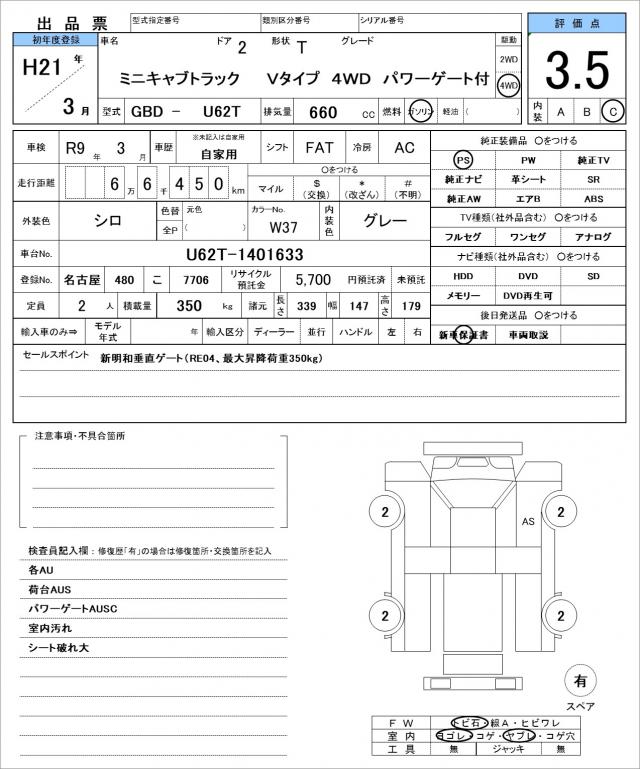 出品票 型式指定番号 類別区分番号 シリアル番号
評価点
初年度登録 車名 ドア 2 形状 T グレード 駆動
H21 年 3 月
ミニキャブトラック Vタイプ 4WD パワーゲート付
2WD
4WD
3.5
型式 GBD - U62T 排気量 660 cc 燃料 ガソリン 軽油 ( )
内装 A B C
車検 R9 年 3 月 車歴 ※未記入は自家用 自家用 シフト FAT 冷房 AC
走行距離 6 6 万 4 5 0 千 km
○をつける
マイル $(交換) *(改ざん) #(不明)
外装色 シロ 色替 元色 全P ( ) カラーNo. W37 内装色 グレー
車台No. U62T-1401633
登録No. 名古屋 480 こ 7706 リサイクル預託金 5,700 円預託済 未預託
定員 2 人 積載量 350 kg 諸元 長さ 339 幅 147 高さ 179
輸入車のみ⇒ モデル年式 年 輸入区分 ディーラー 並行 ハンドル 左 右
純正装備品 ○をつける
PS PW 純正TV
純正ナビ 革シート SR
純正AW エアB ABS
TV種類(社外品含む) ○をつける
フルセグ ワンセグ アナログ
ナビ種類(社外品含む) ○をつける
HDD DVD SD
メモリー DVD再生可
後日発送品 ○をつける
新車保証書 車両取説
セールスポイント 新明和垂直ゲート(RE04、最大昇降荷重350kg)
注意事項・不具合箇所
検査員記入欄：修復歴「有」の場合は修復箇所・交換箇所を記入
各AU
荷台AUS
パワーゲートAUSC
室内汚れ
シート破れ大
2 2
AS
2 2
有
スペア
FW トビ石・線A・ヒビワレ
室内 ヨゴレ・コゲ・ヤブレ・コゲ穴
工具 無 ジャッキ 無